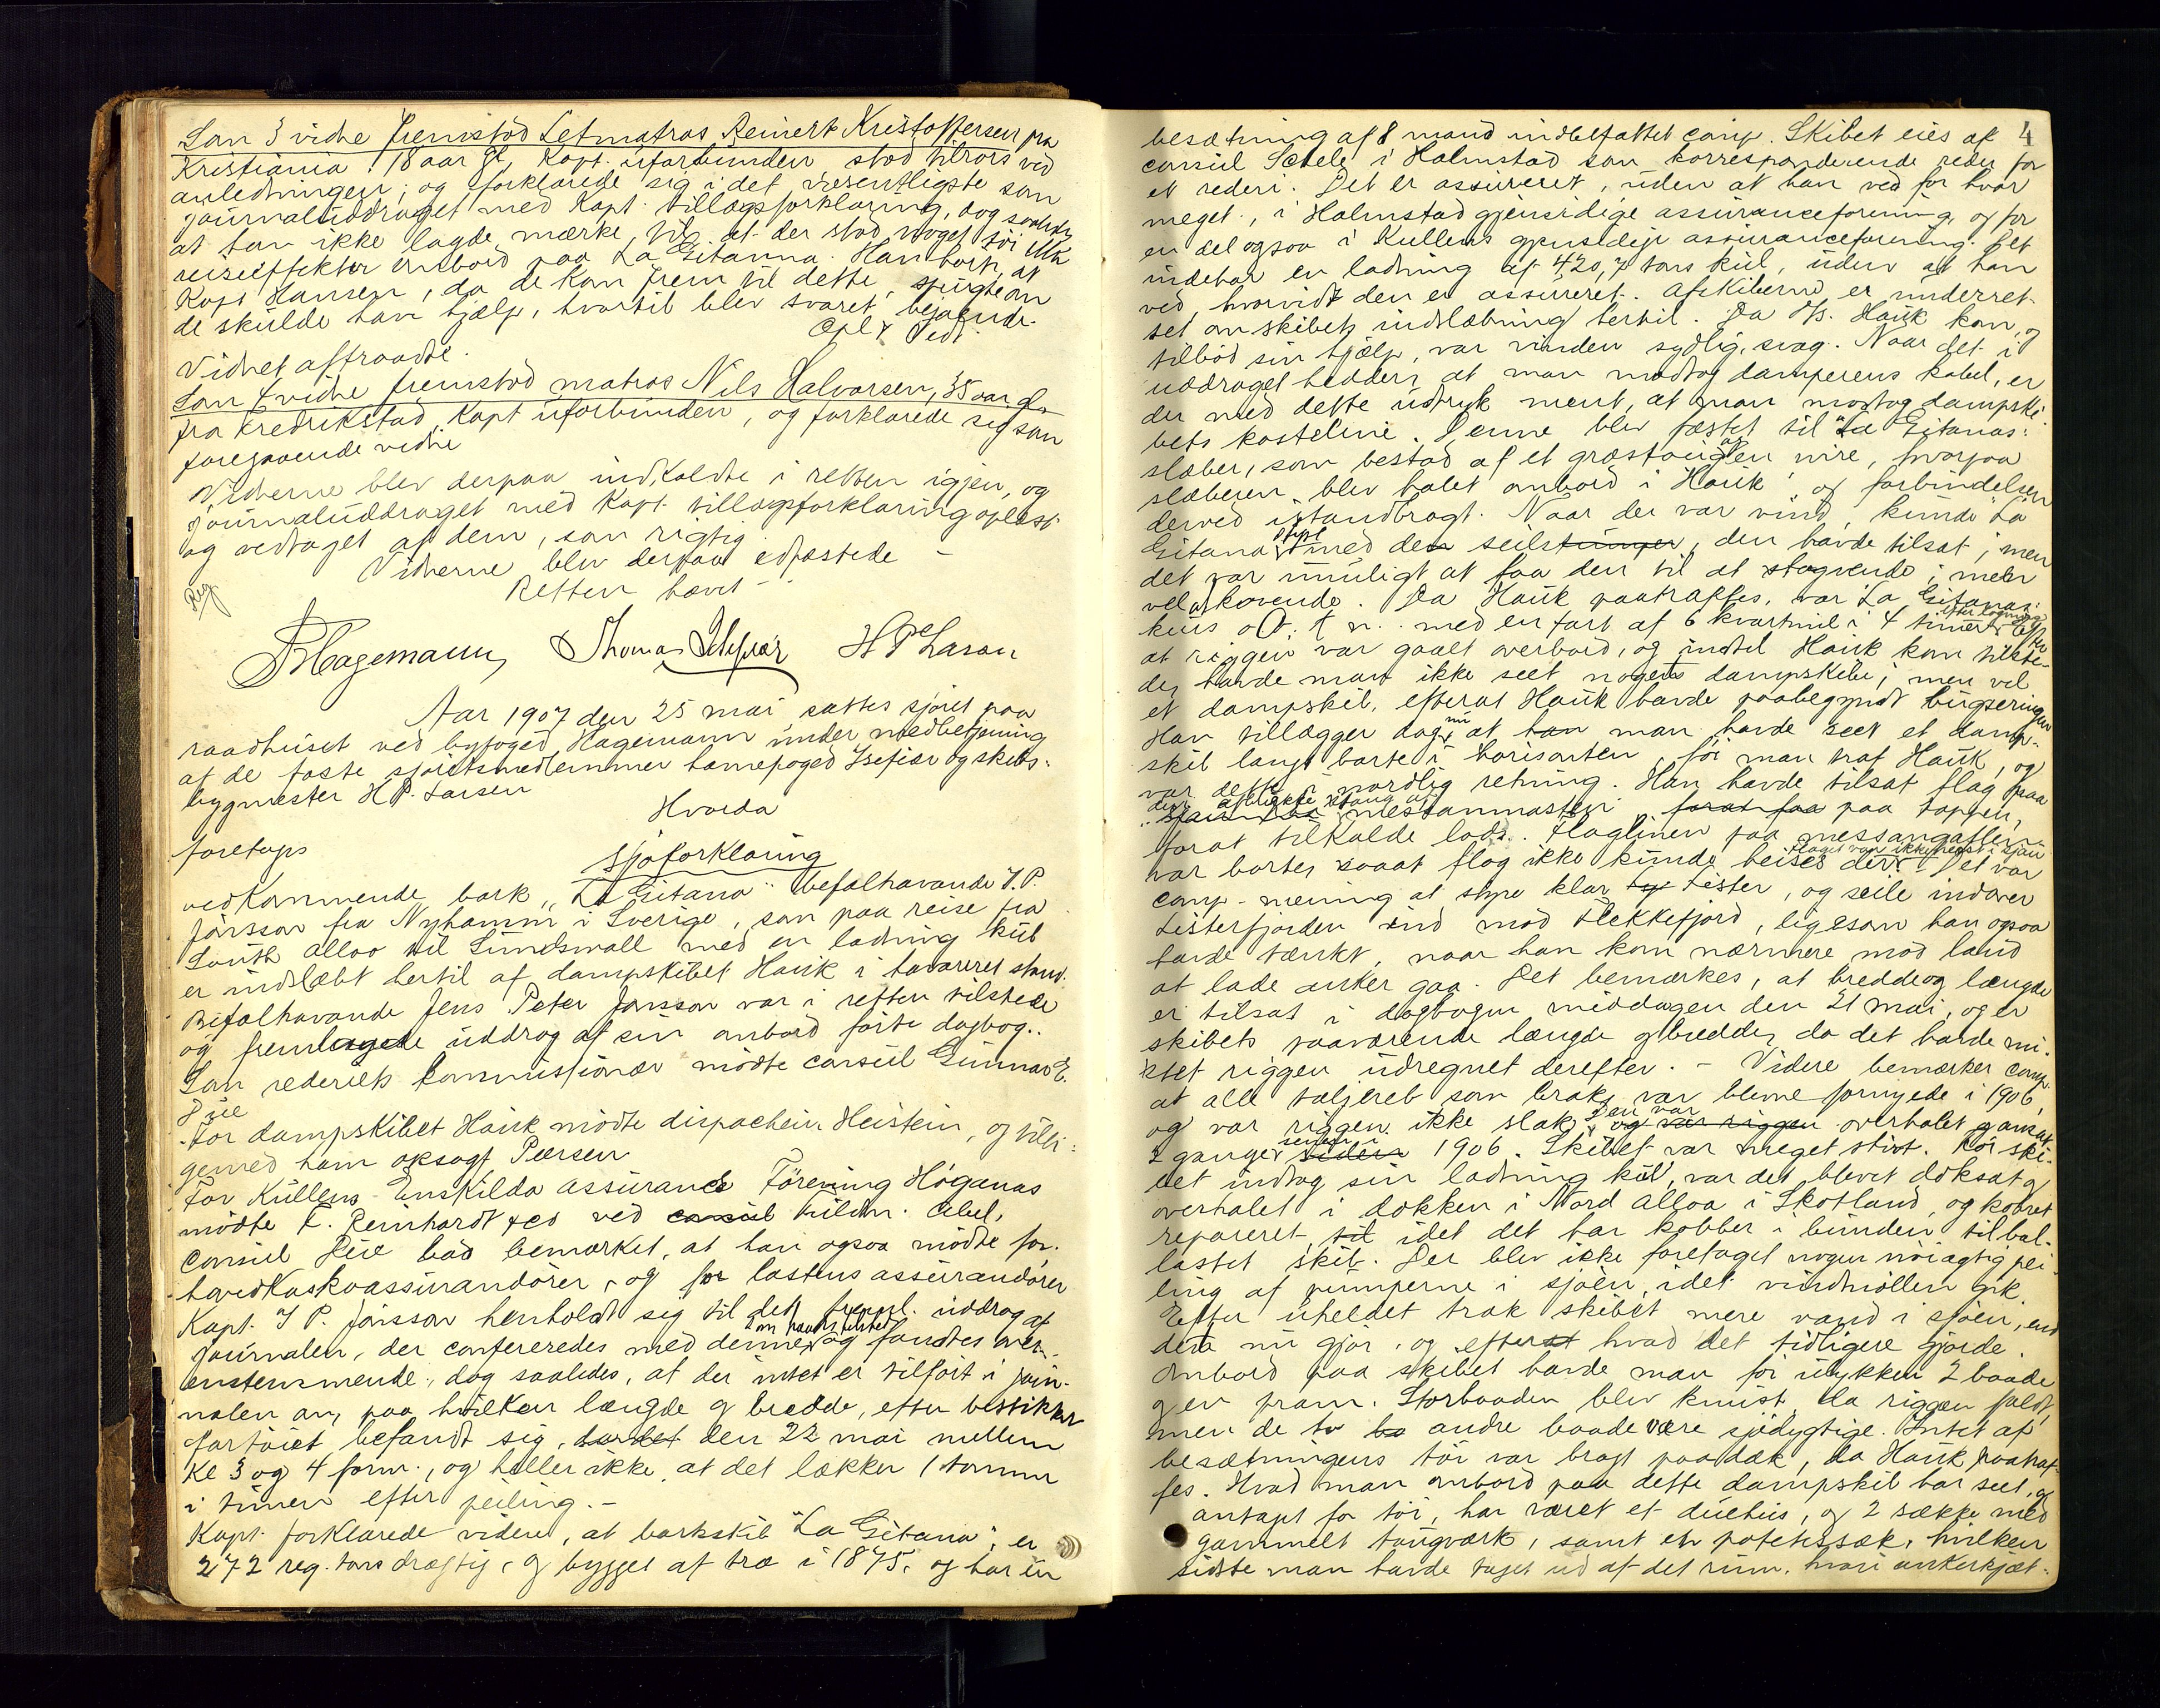 Som 3 vidne fremstod Letmatros Reinert Kristoffersen fra
Kristiania. 18 aar gl, Kapt. uforbunden stod tilrors ved
anledningen; og forklarede sig i det væsentligste som
journaluddraget med Kapt. tillægsforklaring, dog saaledes
at han ikke lagde mærke til at der stod noget tøi
reiseeffekter ombord paa La Gitanna. Han hørte at
Kapt Hansen, da de kom frem til dette, spurgte om
de skulde have hjælp, hvortil blev svaret bejaende.
Opl & Vedt.
Vidnet aftraadte.
Som 4 vidne fremstod matros Nils Halvorsen, 35 aar gl.
fra Fredrikstad, Kapt uforbunden, og forklarede sig som
foregaaende vidne
Vidnerne blev derpaa indkaldte i retten igjen, og
journaluddraget med Kapt. tillægsforklaring oplæst
og vedtaget af dem, som rigtig.
Vidnerne blev derpaa edfæstede –
Retten hævet –
Reg
Hagemann Thomas Isefiær H P Larsen
Aar 1907 den 25 mai sattes sjøret paa
raadhuset ved byfoged Hagemann under medbetjening
af de faste sjøretsmedlemmer havnefoged Isefiær og skibs-
bygmester H P. Larsen
Hvorda
foretoges
sjøforklaring
vedkommende bark „La Gitana" befalhavande J. P.
Jönsson fra Nyhamn i Sverige, som paa reise fra
South Alloo til Sundswall med en ladning kul
er indslæbt hertil af dampskibet Hauk i havareret stand.
Befalhavande Jens Peter Jönsson var i retten tilstede
og fremlagde uddrag af sin ombord førte dagbog.
Som rederiets kommissionær mødte consul Gunnar E.
Due
For dampskibet Hauk mødte dispacheur Heistein, og tilli-
gemed ham oksagf. Peersen
For Kullens Enskilda Assurans Förening Höganas
mødte F. Reinhardt & co ved consul Vilhm. Abel,
Consul Due bad bemærket, at han ogsaa mødte for
hovedkaskoassurandører, og for lastens assurandører
Kapt. J P. Jönsson henholdt sig til det fremml. uddrag af
journalen, der confereredes med denne, som havdes tilstede og fandtes over-
ensstemmende, dog saaledes, at der intet er tilført i jour-
nalen om, paa hvilken længde og bredde, efter bestikket
fartøiet befandt sig, den 22 mai mellem
Kl 3 og 4 form., og heller ikke, at det lækker 1 tomme
i timen efter peiling. –
Kapt. forklarede videre, at barkskib "La Gitana", er
272 reg. tons drægtig, og bygget af træ i 1875, og har en
4
besætning af 8 mand indbefattet capt. Skibet eies af
consul Schele i Halmstad som korresponderende reder for
et rederi. Det er assureret, uden at han ved for hvor
meget, i Halmstad gjensidige assuranceforening, og for
en del ogsaa i Kullens gjensidige assuranceforening. Det
indehar en ladning af 420,7 tons kul, uden at han
ved, hvorvidt den er assureret. Afskiberne er underret-
tet om skibets indslæbning hertil. Da D/s. Hauk kom, og
tilbød sin hjælp, var vinden sydlig, svag. Naar det i
uddraget hedder, at man modtog damperens kabel, er
der med dette udtryk ment, at man modtog dampski-
bets kasteline. Denne blev fæstet til "La Gitanas"
slæber, som bestod af et græstoug og en wire, hvorpaa
slæberen blev halet ombord i Hauk og forbindelsen
derved istandbragt. Naar der var vind, kunde La
Gitana styre med de seil, den havde tilsat; men
det var umuligt at faa den til at stagvende; men
vel at kovende. Da Hauk paatraffes, var La Gitanas
kurs o. t. n. med en fart af 6 kvartmil i 4 timer efter logning. Efter
at riggen var gaaet overbord, og indtil Hauk kom tilste-
de, havde man ikke seet nogen dampskibe; men vel
et dampskib, efterat Hauk havde paabegyndt bugseringen
Han tillægger dog nu, at man havde seet et damp-
skib langt borte i horisonten, før man traf Hauk, og
var dette i nordlig retning. Han havde tilsat flag paa
den messanmasten paa toppen,
forat tilkalde lods. Flaglinen paa messangaflen
var borte, saaat flag ikke kunde heises der. Flaget var ikke Det var
capt. mening at styre klar Lister, og seile indover
Listerfjorden ind mod Flekkefjord, ligesom han ogsaa
havde tænkt, naar han kom nærmere mod land
at lade anker gaa. Det bemærkes, at bredde og længde
er tilsat i dagbogen middagen den 21 mai, og er
skibets paaværende længde og bredde, da det havde mi-
stet riggen udregnet derefter. – Videre bemærker capt.
at alle taljereb, som brak, var bleven fornyede i 1906,
og var riggen ikke slak. Den var overhalet ganske
2 ganger senest i 1906. Skibet var meget stivt. Før ski-
bet indtog sin ladning kul, var det blevet doksat og
overhalet i dokken i Nord Alloa i Skotland, og kobret
repareret idet det har kobber i bunden til bal-
lastet skib. Der blev ikke foretaget nogen nøiagtig pei-
ling af pumperne i sjøen, idet vindmøllen gik.
Efter uheldet trak skibet mere vand i sjøen, end
dette nu gjør, og efter hvad det tidligere gjorde.
Ombord paa skibet havde man før ulykken 2 baade
og en pram. Storbaaden blev knust, da riggen faldt,
men de to andre baade være sjødygtige. Intet af
besætningens tøi var bragt paa dæk, da Hauk paatraf-
fes. Hvad man ombord paa dette dampskib har seet, og
antaget for tøi, har været et duehus, og 2 sække med
gammelt tougværk, samt en potetessæk, hvilken
sidste man havde taget ud af det rum, hvori ankerkjæt-